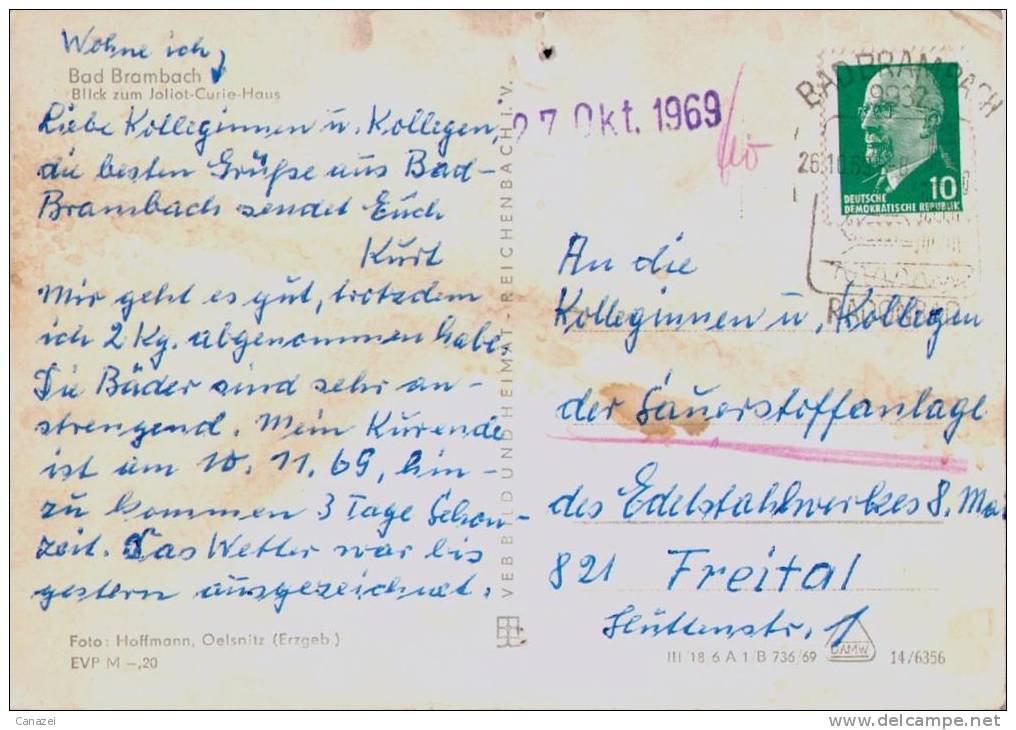 Wohne ich
Bad Brambach
Blick zum Joliot-Curie-Haus
Liebe Kolleginnen u. Kollegen,
die besten Grüße aus Bad-
Brambach sendet Euch
Kurt
Mir geht es gut, trotzdem
ich 2 Kg. abgenommen habe.
Die Bäder sind sehr an-
strengend. Mein Kurende
ist am 10. 11. 69, hin-
zu kommen 3 Tage Schon-
zeit. Das Wetter war bis
gestern ausgezeichnet.
Foto: Hoffmann, Oelsnitz (Erzgeb.)
EVP M -,20
VEB BILD UND HEIMAT · REICHENBACH i. V.
27 Okt. 1969
BAD BRAMBACH
9932
26.10.69
RADONBAD
10
DEUTSCHE
DEMOKRATISCHE REPUBLIK
An die
Kolleginnen u. Kollegen
der Sauerstoffanlage
des Edelstahlwerkes 8. Mai
821 Freital
Hüttenstr. 1
III 18 6 A 1 B 736/69
DAMW
14/6356
Canazei
www.delcampe.net